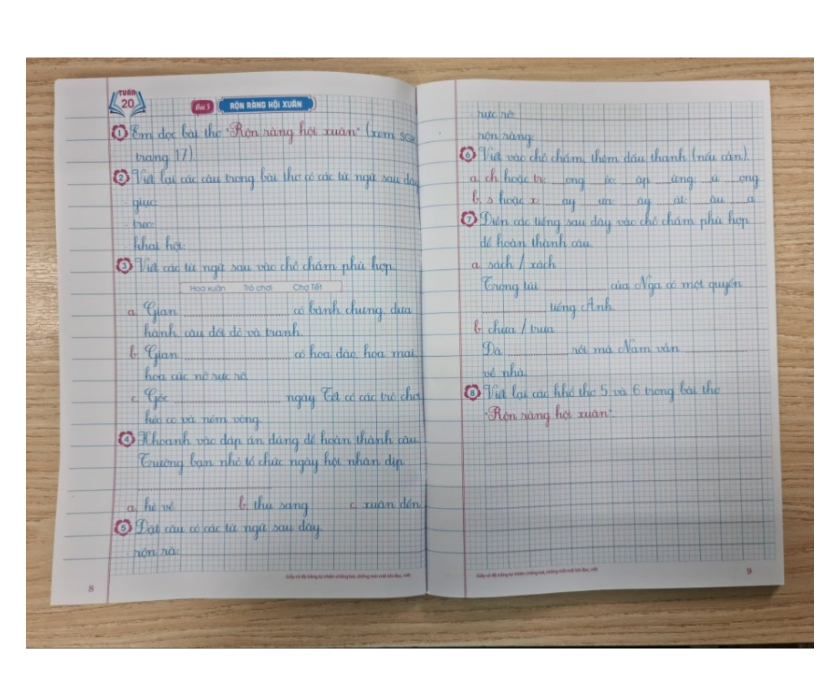 TUẦN
20
Bài 1
RỘN RÀNG HỘI XUÂN
1 Em đọc bài thơ "Rộn ràng hội xuân" (xem SGK
trang 17).
2 Viết lại các câu trong bài thơ có các từ ngữ sau đây
- giục:
- trúc:
- khai hội:
3 Viết các từ ngữ sau vào chỗ chấm phù hợp.
Hoa xuân Trò chơi Chợ Tết
a. Gian ............ có bánh chưng, dưa
hành, câu đối đỏ và tranh.
b. Gian ............ có hoa đào, hoa mai,
hoa cúc nở rực rỡ.
c. Góc ............ ngày Tết có các trò chơi
kéo co và ném vòng.
4 Khoanh vào đáp án đúng để hoàn thành câu.
Trường bạn nhỏ tổ chức ngày hội nhân dịp
............
a. hè về b. thu sang c. xuân đến
5 Đặt câu có các từ ngữ sau đây.
- rộn rã:
8
- rực rỡ:
- rộn ràng:
6 Viết vào chỗ chấm, thêm dấu thanh (nếu cần).
a. ch hoặc tr: ...ong ...úc ...ạp ...ứng ...ú ...ong
b. s hoặc x: ...ay ...ưn ...ay ...at ...âu ...a
7 Điền các tiếng sau đây vào chỗ chấm phù hợp
để hoàn thành câu.
a. sách / xách
Trong túi ............ của Nga có một quyển
............ tiếng Anh.
b. chưa / trưa
Đã ............ rồi mà Nam vẫn ............
về nhà.
8 Viết lại các khổ thơ 5 và 6 trong bài thơ
"Rộn ràng hội xuân".
9